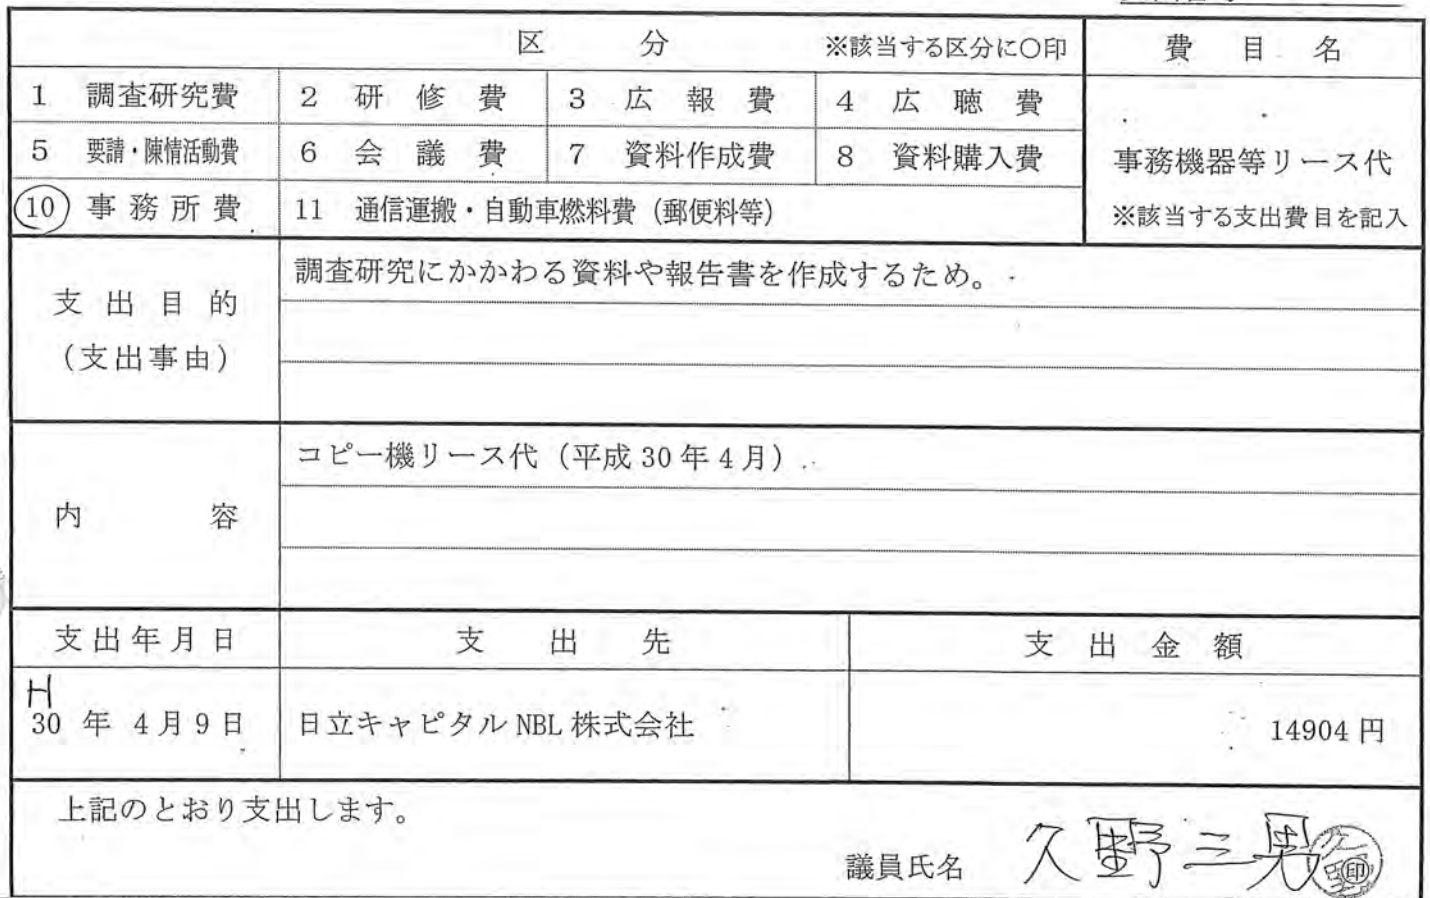 区 分 ※該当する区分に○印 費目名
1 調査研究費 2 研修費 3 広報費 4 広聴費
5 要請・陳情活動費 6 会議費 7 資料作成費 8 資料購入費 事務機器等リース代
10 事務所費 11 通信運搬・自動車燃料費（郵便料等） ※該当する支出費目を記入
支出目的
（支出事由）
調査研究にかかわる資料や報告書を作成するため。
内容
コピー機リース代（平成30年4月）
支出年月日 支出先 支出金額
H
30年 4月9日 日立キャピタルNBL株式会社 14904円
上記のとおり支出します。
議員氏名 久野三男 印